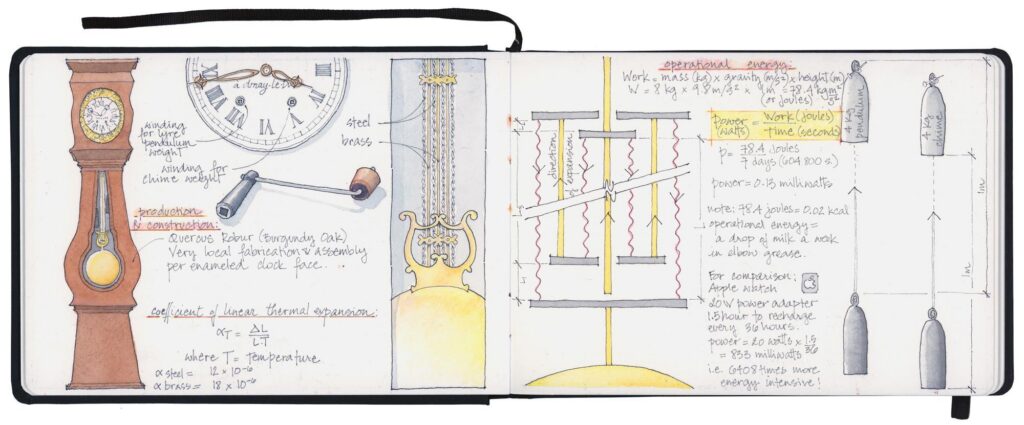 winding
for lyre
pendulum
weight
winding for
chime weight
steel
brass
production
& construction:
Quercus Robur (Burgundy Oak)
Very local fabrication & assembly
per enameled clock face.
coefficient of linear thermal expansion:
αT = ΔL
LT
where T = Temperature
α steel = 12 x 10⁻⁶
α brass = 18 x 10⁻⁶
direction
of expansion
operational energy:
Work = mass (kg) x gravity (m/s²) x height (m)
W = 8 kg x 9.8 m/s² x 1m = 78.4 kg m²/s²
(or joules)
Power = Work (Joules)
(watts) Time (seconds)
P = 78.4 Joules
7 days (604 800 s)
power = 0.13 milliwatts
note: 78.4 joules = 0.02 kcal
operational energy =
a drop of milk a week
in elbow grease.
For comparison:
Apple watch
20W power adapter
1.5 hour to recharge
every 36 hours.
power = 20 watts x 1.5/36
= 833 milliwatts
i.e. 6408 times more
energy intensive!
4 Kg
pendulum
4 Kg
chime
1m
1m